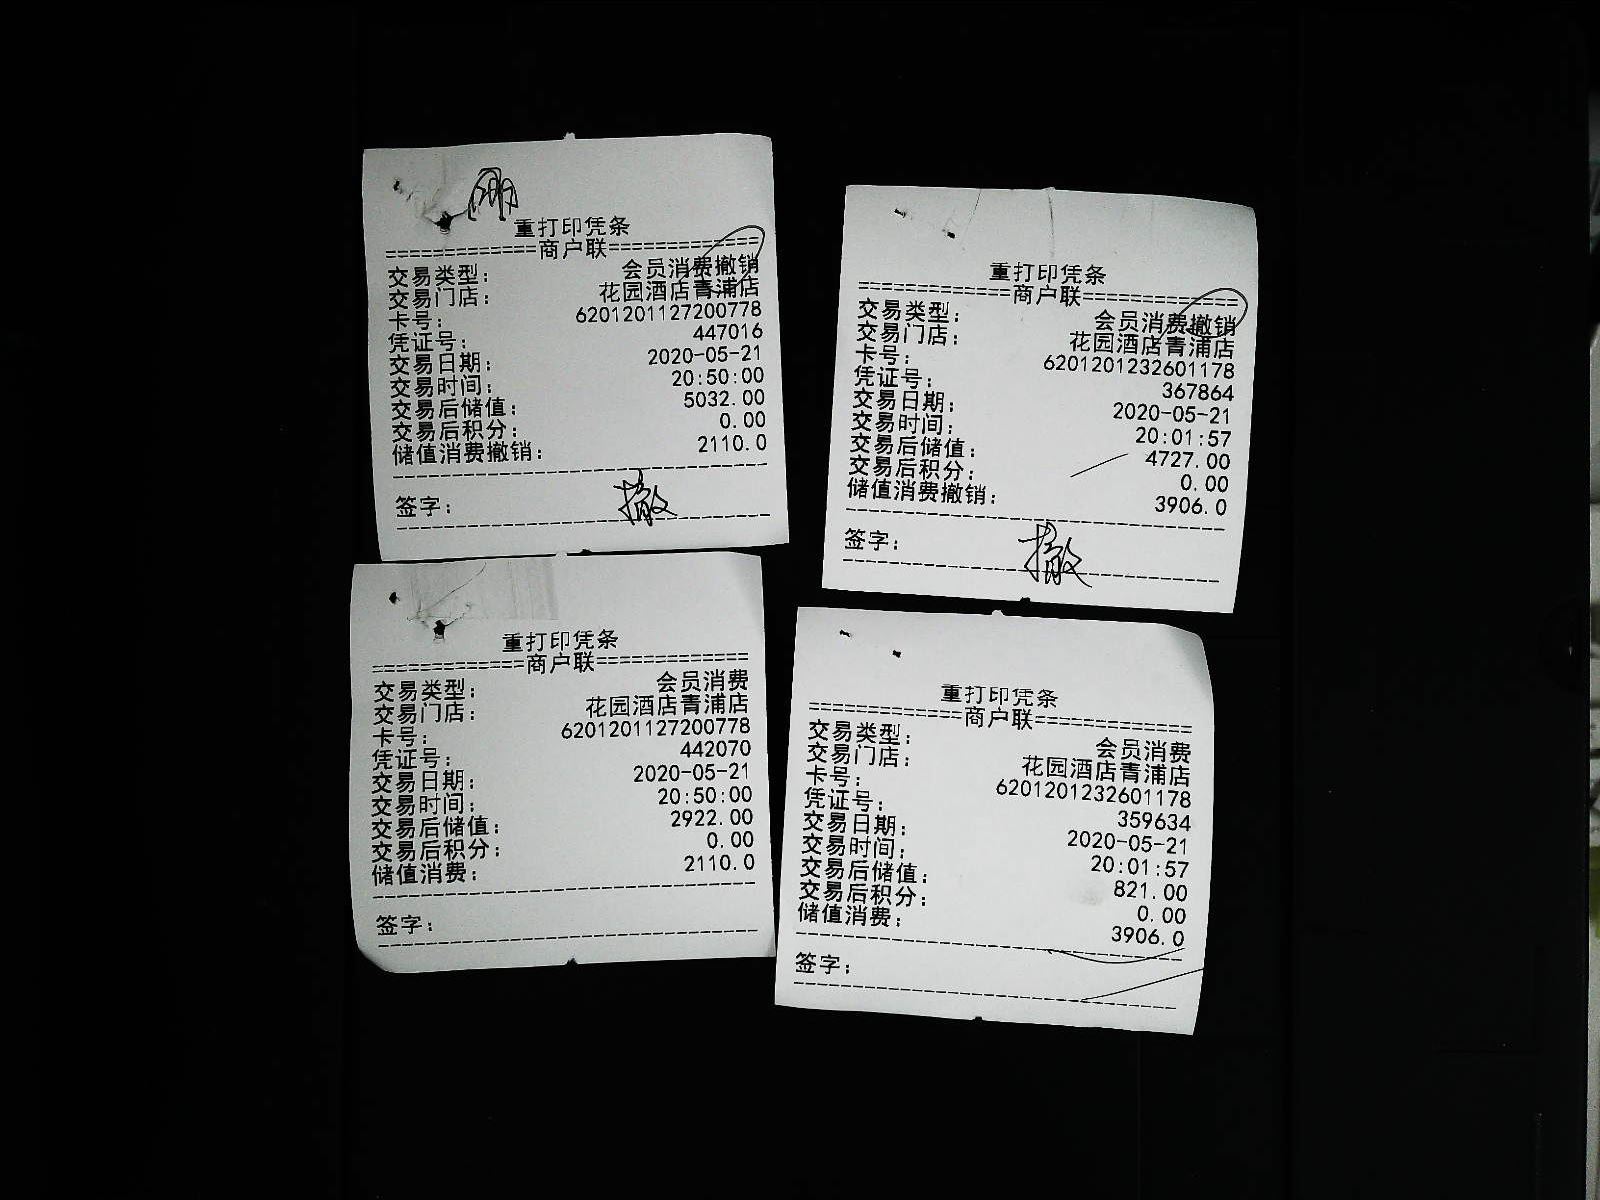 重打印凭条
=============商户联=============
交易类型: 会员消费撤销
交易门店: 花园酒店青浦店
卡号: 6201201127200778
凭证号: 447016
交易日期: 2020-05-21
交易时间: 20:50:00
交易后储值: 5032.00
交易后积分: 0.00
储值消费撤销: 2110.0
签字: 撤
重打印凭条
=============商户联=============
交易类型: 会员消费撤销
交易门店: 花园酒店青浦店
卡号: 6201201232601178
凭证号: 367864
交易日期: 2020-05-21
交易时间: 20:01:57
交易后储值: 4727.00
交易后积分: 0.00
储值消费撤销: 3906.0
签字: 撤
重打印凭条
=============商户联=============
交易类型: 会员消费
交易门店: 花园酒店青浦店
卡号: 6201201127200778
凭证号: 442070
交易日期: 2020-05-21
交易时间: 20:50:00
交易后储值: 2922.00
交易后积分: 0.00
储值消费: 2110.0
签字:
重打印凭条
=============商户联=============
交易类型: 会员消费
交易门店: 花园酒店青浦店
卡号: 6201201232601178
凭证号: 359634
交易日期: 2020-05-21
交易时间: 20:01:57
交易后储值: 821.00
交易后积分: 0.00
储值消费: 3906.0
签字: